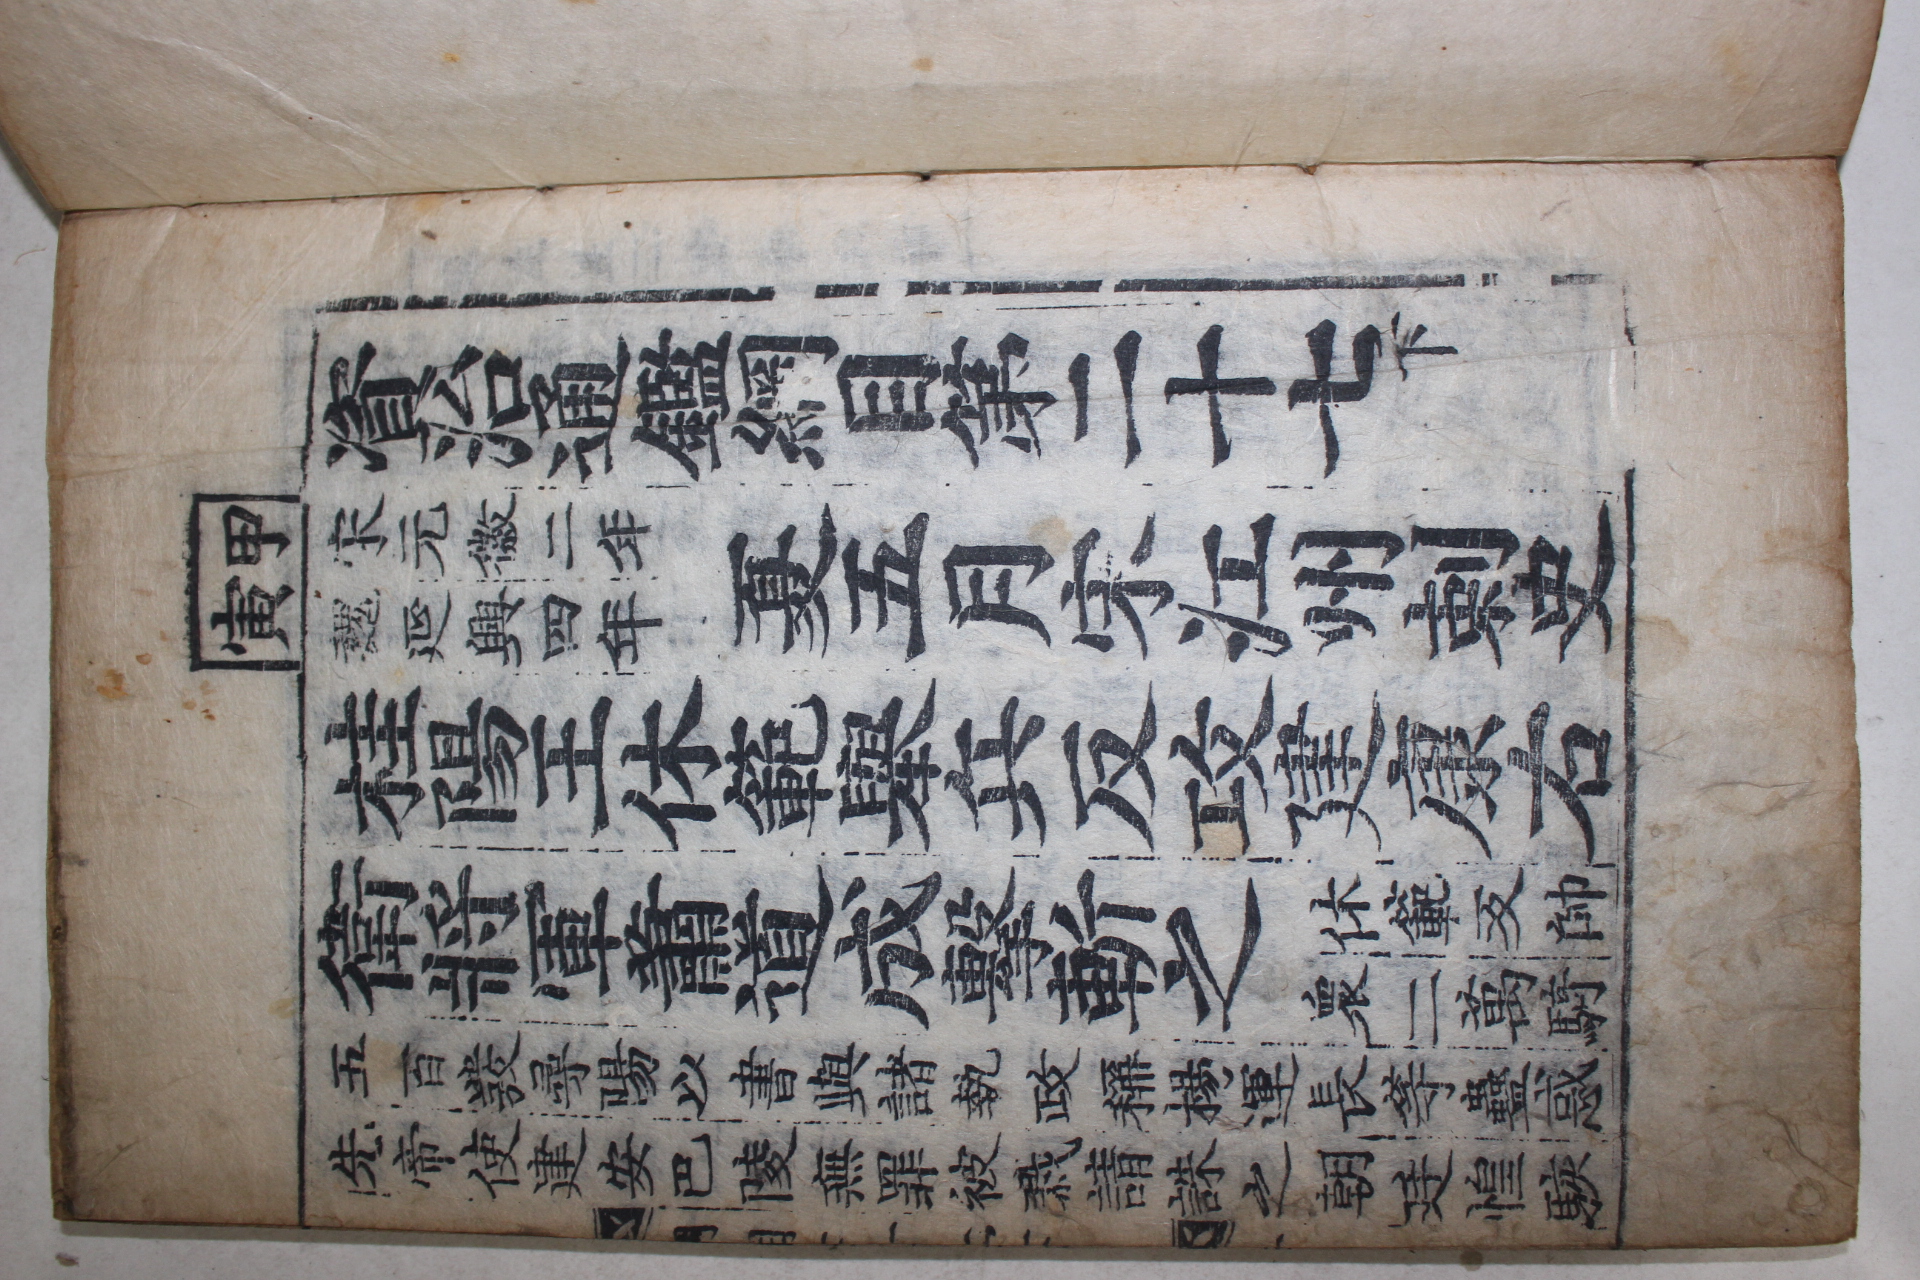 資治通鑑綱目第二十七下
甲寅
宋元徽二年
魏延興四年
夏五月宋江州刺史
桂陽王休範舉兵反攻建康右
衛將軍蕭道成擊斬之
休範反帥
衆二萬騎
五百發尋陽以書與諸執政稱楊運長等蠱惑
先帝使建安巴陵無罪被戮請誅之朝廷惶駭